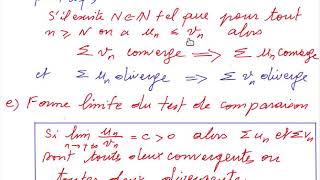 S'il existe N ∈ ℕ tel que pour tout
n ⩾ N on a u_n ≤ v_n alors
Σ v_n converge ⟹ Σ u_n converge
et Σ u_n diverge ⟹ Σ v_n diverge
e) Forme limite du test de comparaison
Si lim_{n→+∞} u_n/v_n = c > 0 alors Σ u_n et Σ v_n
sont toutes deux convergentes ou
toutes deux divergentes